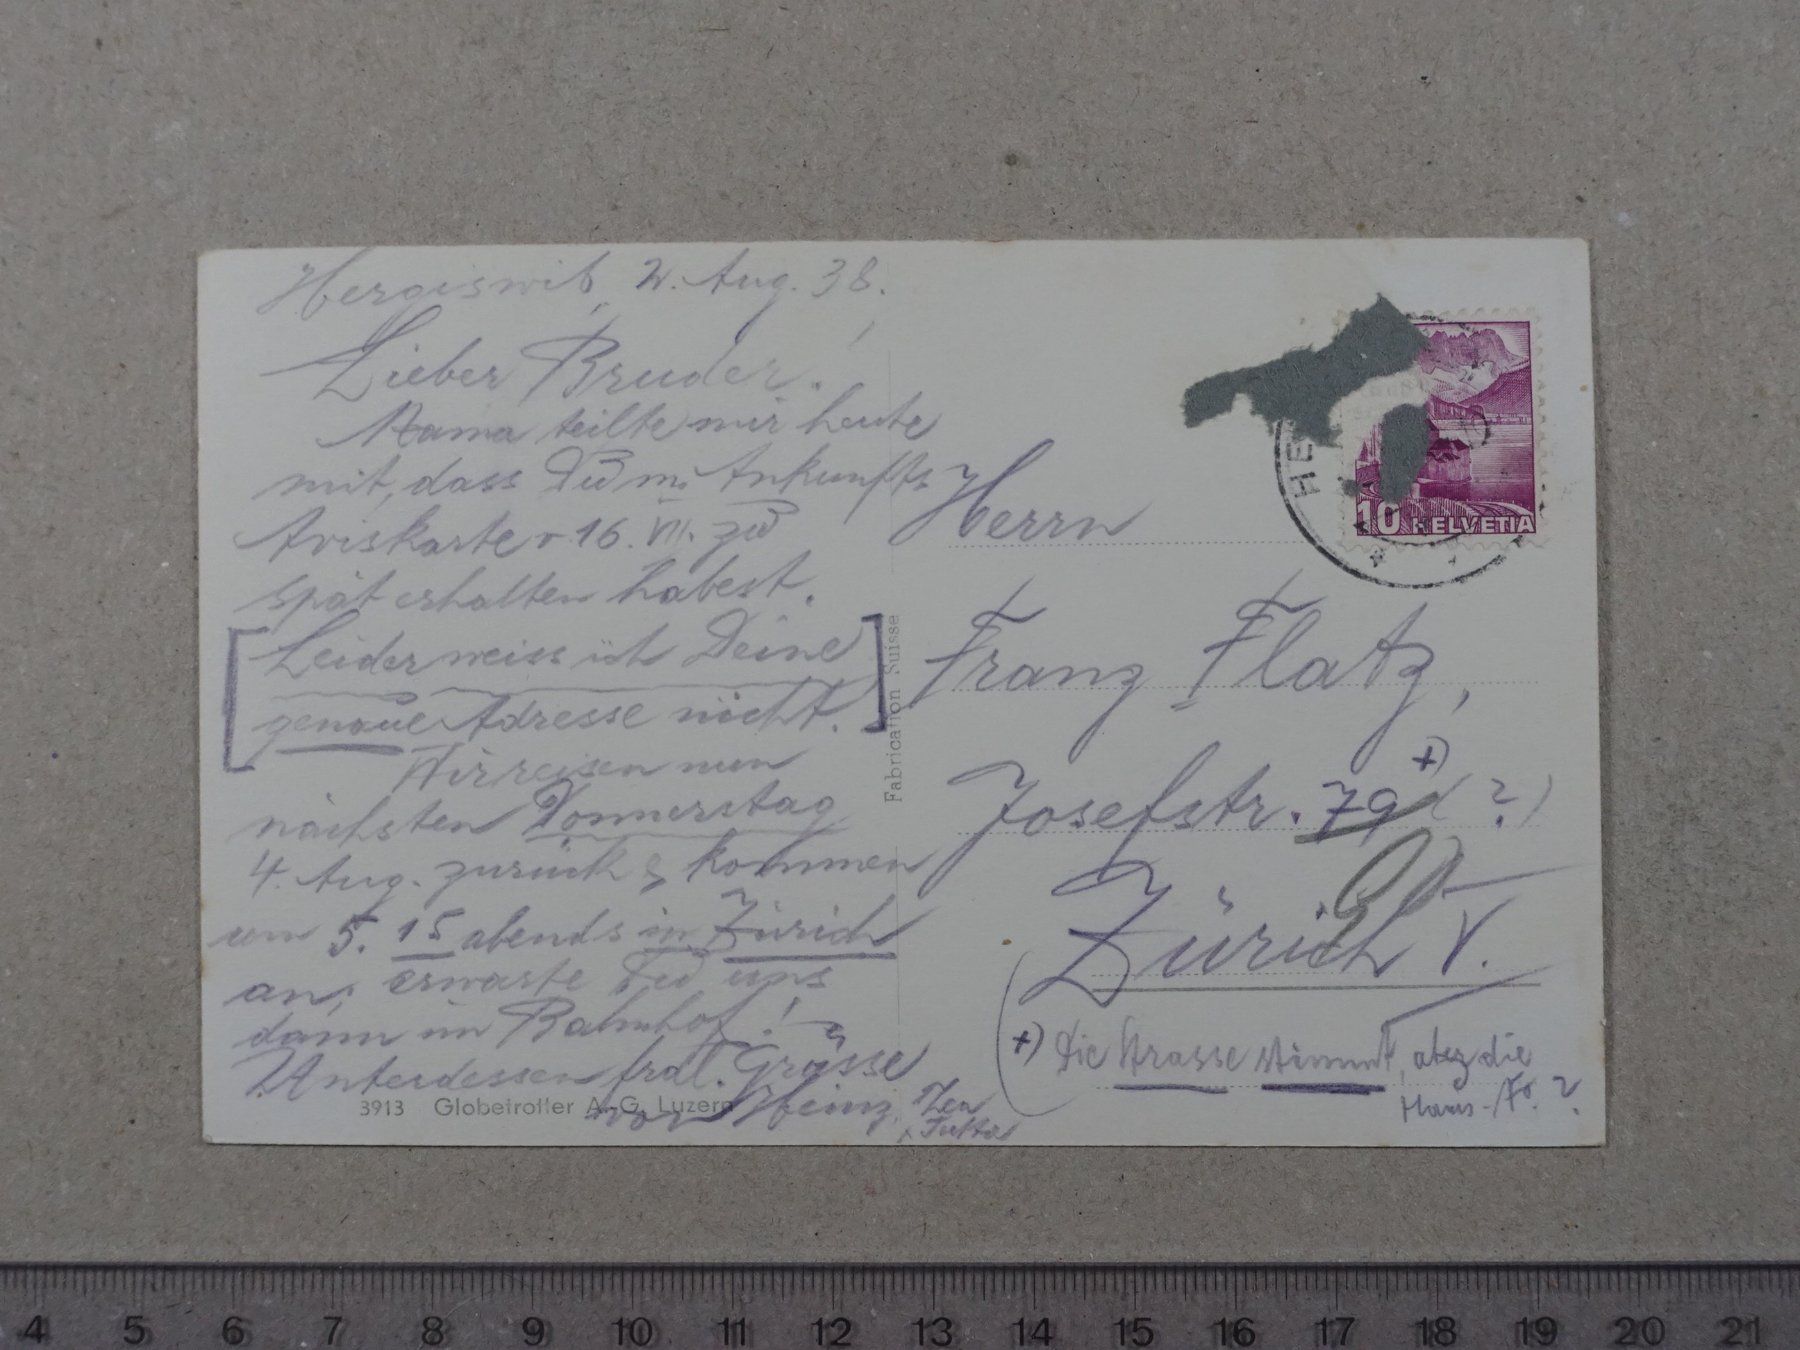 Hergiswil, 2. Aug. 38.
Lieber Bruder!
Mama teilte mir heute
mit, dass Du m. Ankunfts
Aviskarte v. 16. VII. zu
spät erhalten habest.
[Leider weiss ich Deine
genaue Adresse nicht.]
Wir reisen nun
nächsten Donnerstag
4. Aug. zurück & kommen
um 5.15 abends in Zürich
an; erwarte Du uns
dann im Bahnhof!
Unterdessen frdl. Grüsse
von Heinz
3913 Globetrotter A.-G. Luzern
Fabrication Suisse
HE
10 HELVETIA
Herrn
Franz Flatz,
Josefstr. 79 +) (?)
90
Zürich V.
+) Die Strasse stimmt, aber die
Haus-No. ?
4 5 6 7 8 9 10 11 12 13 14 15 16 17 18 19 20 21